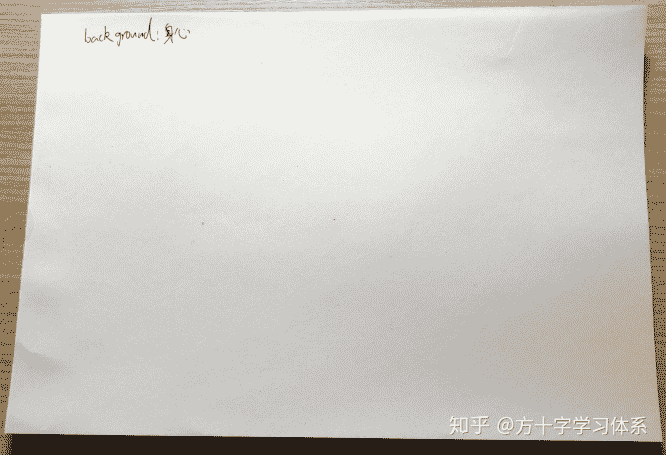 background: 身心
知乎 @方十字学习体系